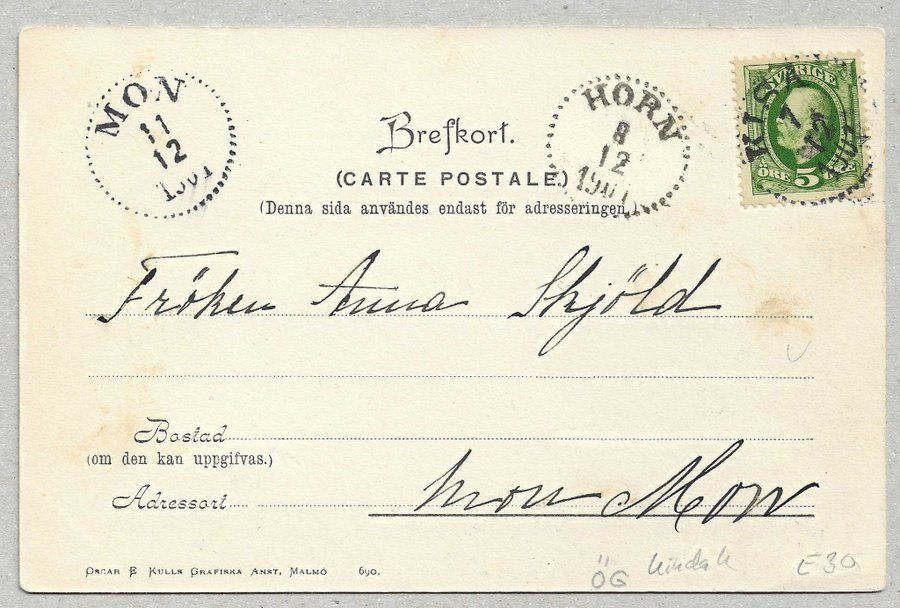 MON
11
12
1901
Brefkort.
(CARTE POSTALE.)
(Denna sida användes endast för adresseringen.)
HORN
8
12
1901
SVERIGE
ÖRE 5 ÖRE
KISA
7
12
1901
Fröken Anna Skjöld
Bostad
(om den kan uppgifvas.)
Adressort
Mon
OSCAR E KULLS GRAFISKA ANST, MALMÖ 690.
ÖG
E30